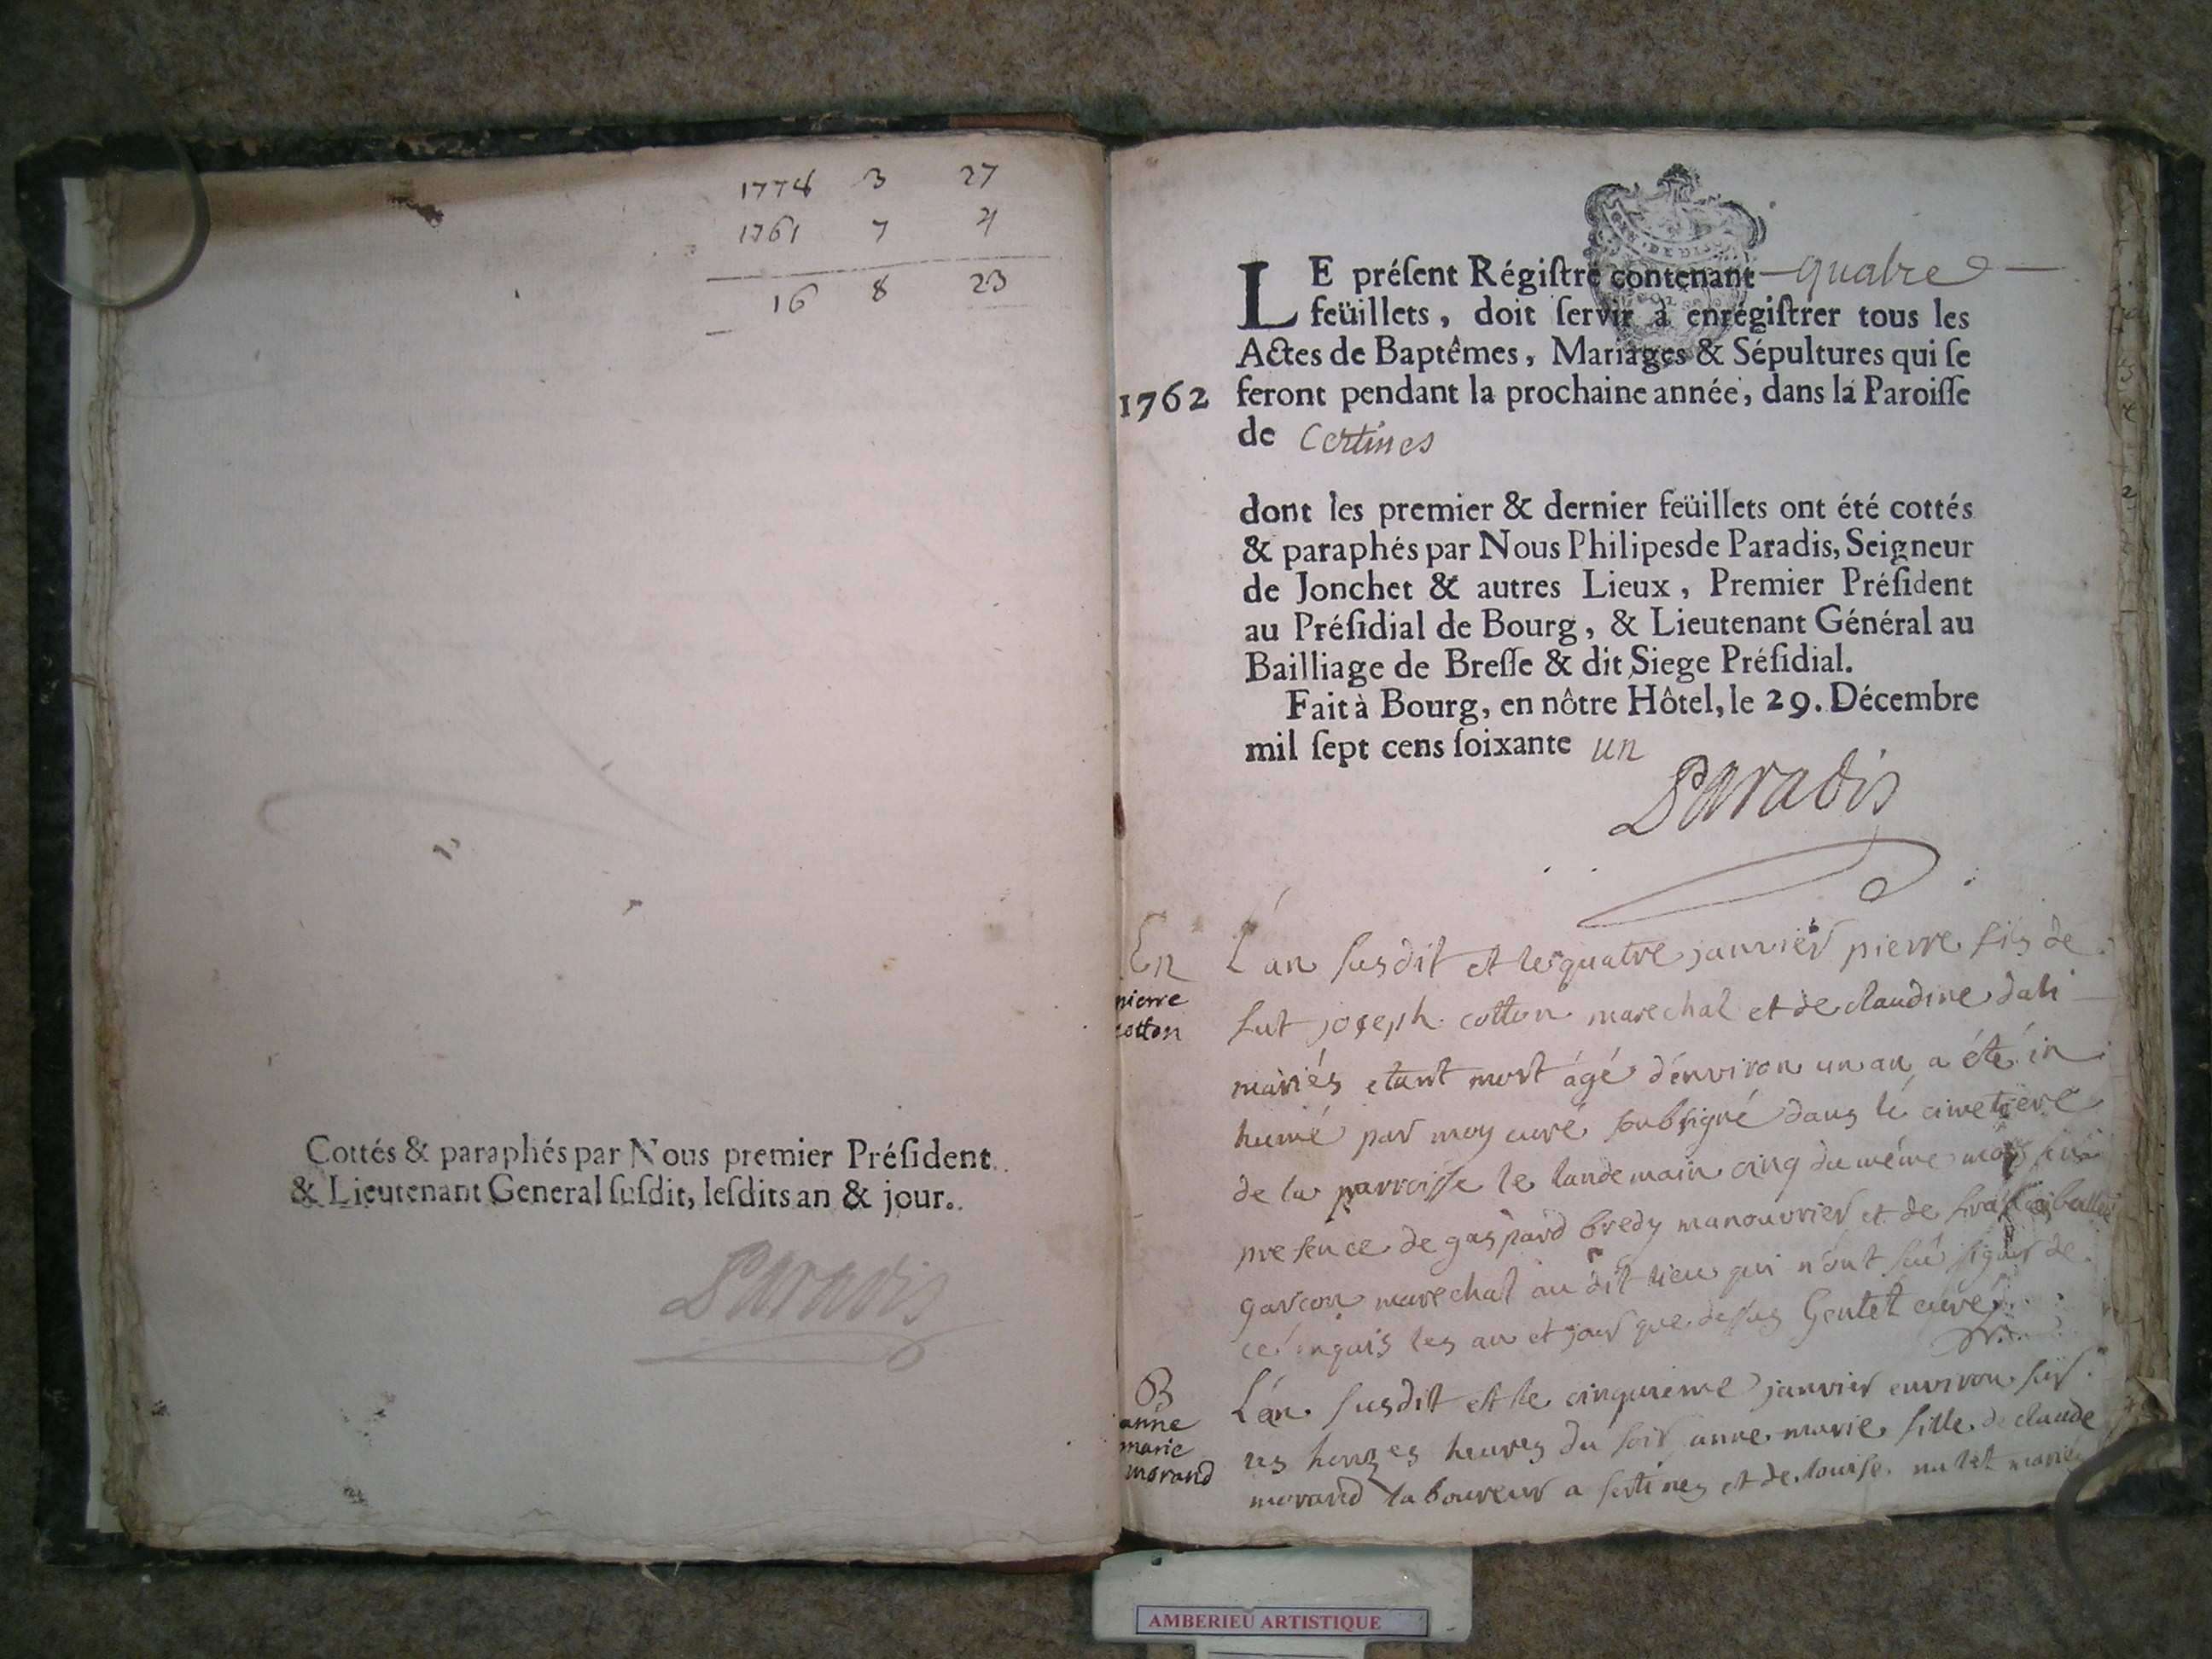 1774 3 27
1761 7 4
16 8 23
Cottés & paraphés par Nous premier Préſident
& Lieutenant General ſuſdit, leſdits an & jour.
Paradis
LE préſent Régiſtre contenant quatre
feüillets, doit ſervir à enrégiſtrer tous les
Actes de Baptêmes, Mariages & Sépultures qui ſe
1762 feront pendant la prochaine année, dans la Paroiſſe
de Certines
dont les premier & dernier feüillets ont été cottés
& paraphés par Nous Philipes de Paradis, Seigneur
de Jonchet & autres Lieux, Premier Préſident
au Préſidial de Bourg, & Lieutenant Général au
Bailliage de Breſſe & dit Siege Préſidial.
Fait à Bourg, en nôtre Hôtel, le 29. Décembre
mil ſept cens ſoixante un
Paradis
En
pierre
cotton
L'an susdit et le quatre janvier pierre fils de
fut joseph cotton marechal et de claudine
mariés etant mort âgé d'environ un an a été in
humé par moy curé soubsigné dans le cimetiere
de la parroisse le landemain cinq du même mois en
presence de gaspard bredy manouvrier et de
garcon marechal au dit lieu qui n'ont sçu signer de
ce enquis les an et jour que dessus Gentet curé
B
anne
marie
morand
L'an susdit et le cinquieme janvier environ sur
les honzes heures du soir anne marie fille de claude
morand laboureur a sertines et de louise mariés
AMBERIEU ARTISTIQUE